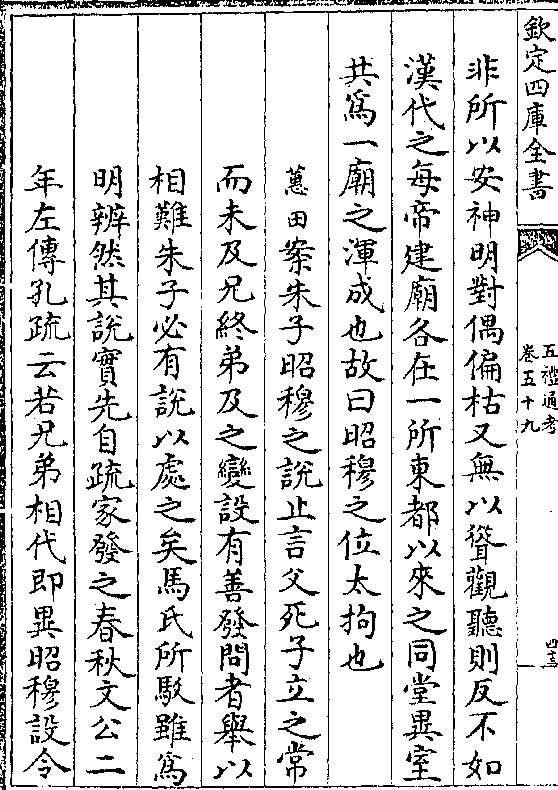 欽定四庫全書
五禮通考
卷五十九
四十三
非所以安神明對偶偏枯又無以聳觀聽則反不如
漢代之每帝建廟各在一所東都以來之同堂異室
共爲一廟之渾成也故曰昭穆之位太拘也
蕙田案朱子昭穆之說止言父死子立之常
而未及兄終弟及之變設有善發問者舉以
相難朱子必有說以處之矣馬氏所駁雖爲
明辨然其說實先自疏家發之春秋文公二
年左傳孔疏云若兄弟相代即異昭穆設令